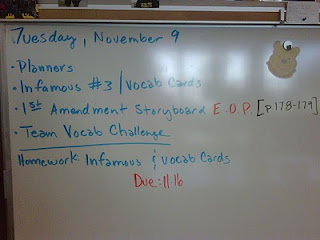 Tuesday, November 9
· Planners
· Infamous #3 / Vocab Cards
· 1st Amendment Storyboard E.O.P. [p178-179]
· Team Vocab Challenge
Homework: Infamous & Vocab Cards
Due: 11.16